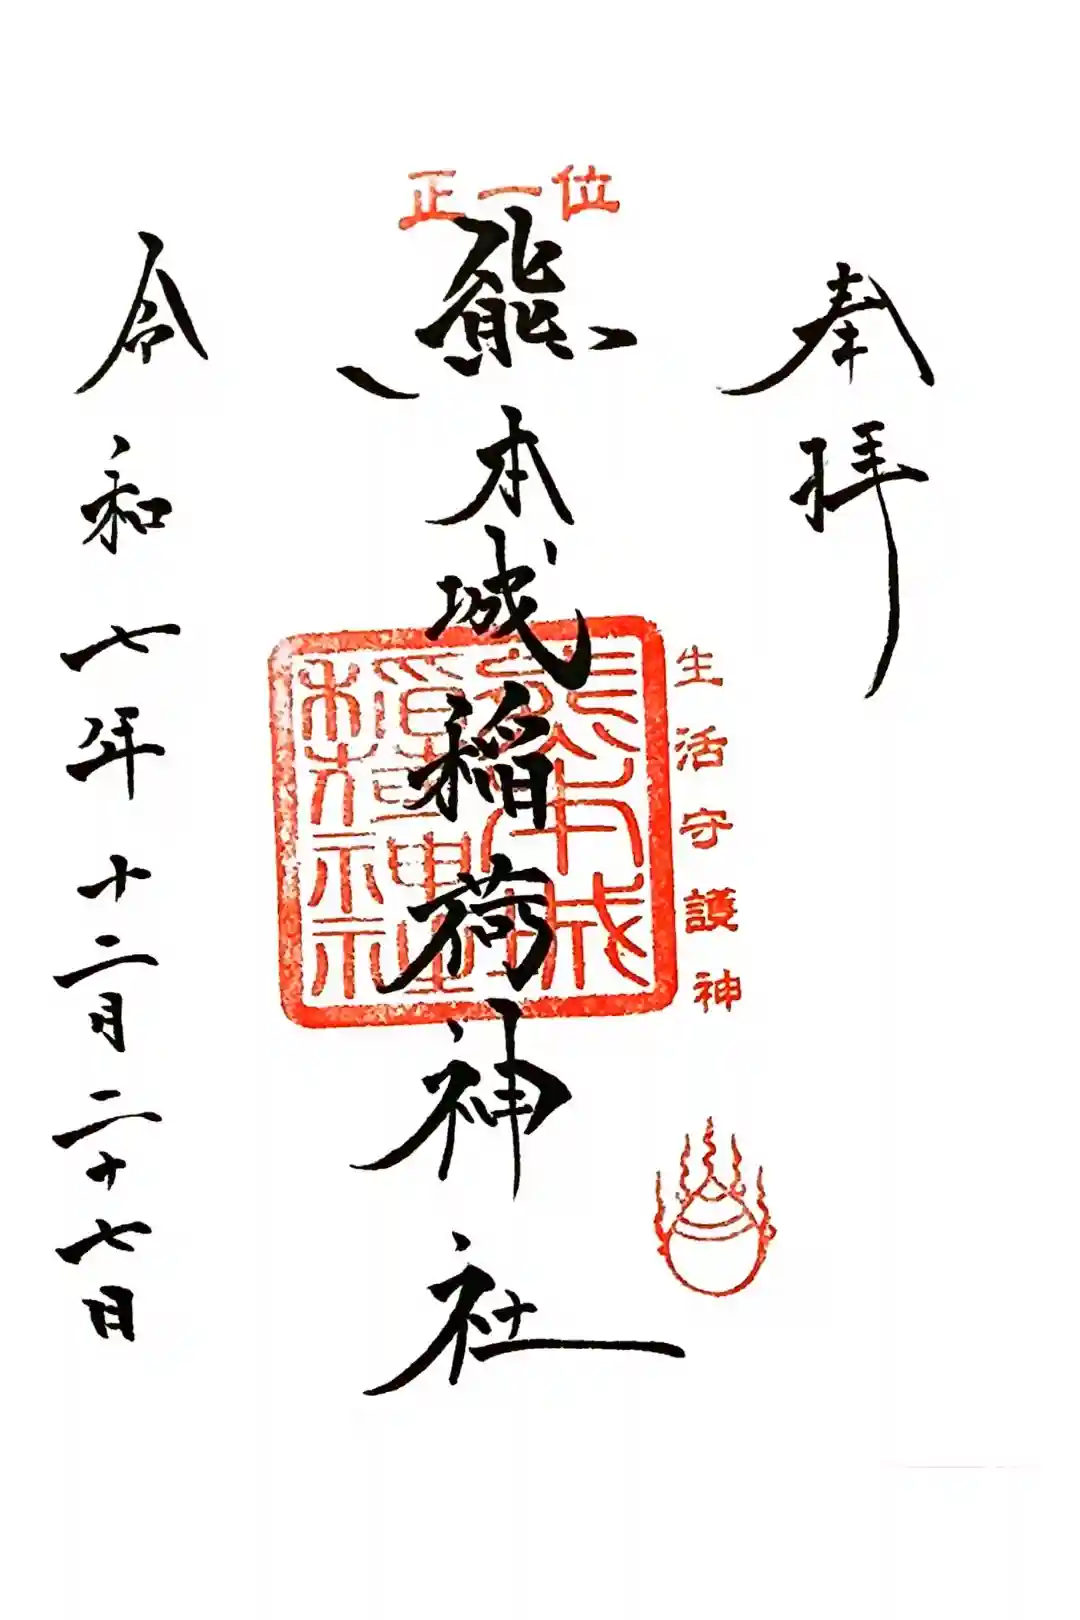 奉拝
生活守護神
正一位
熊本城稲荷神社
令和七年十二月二十七日